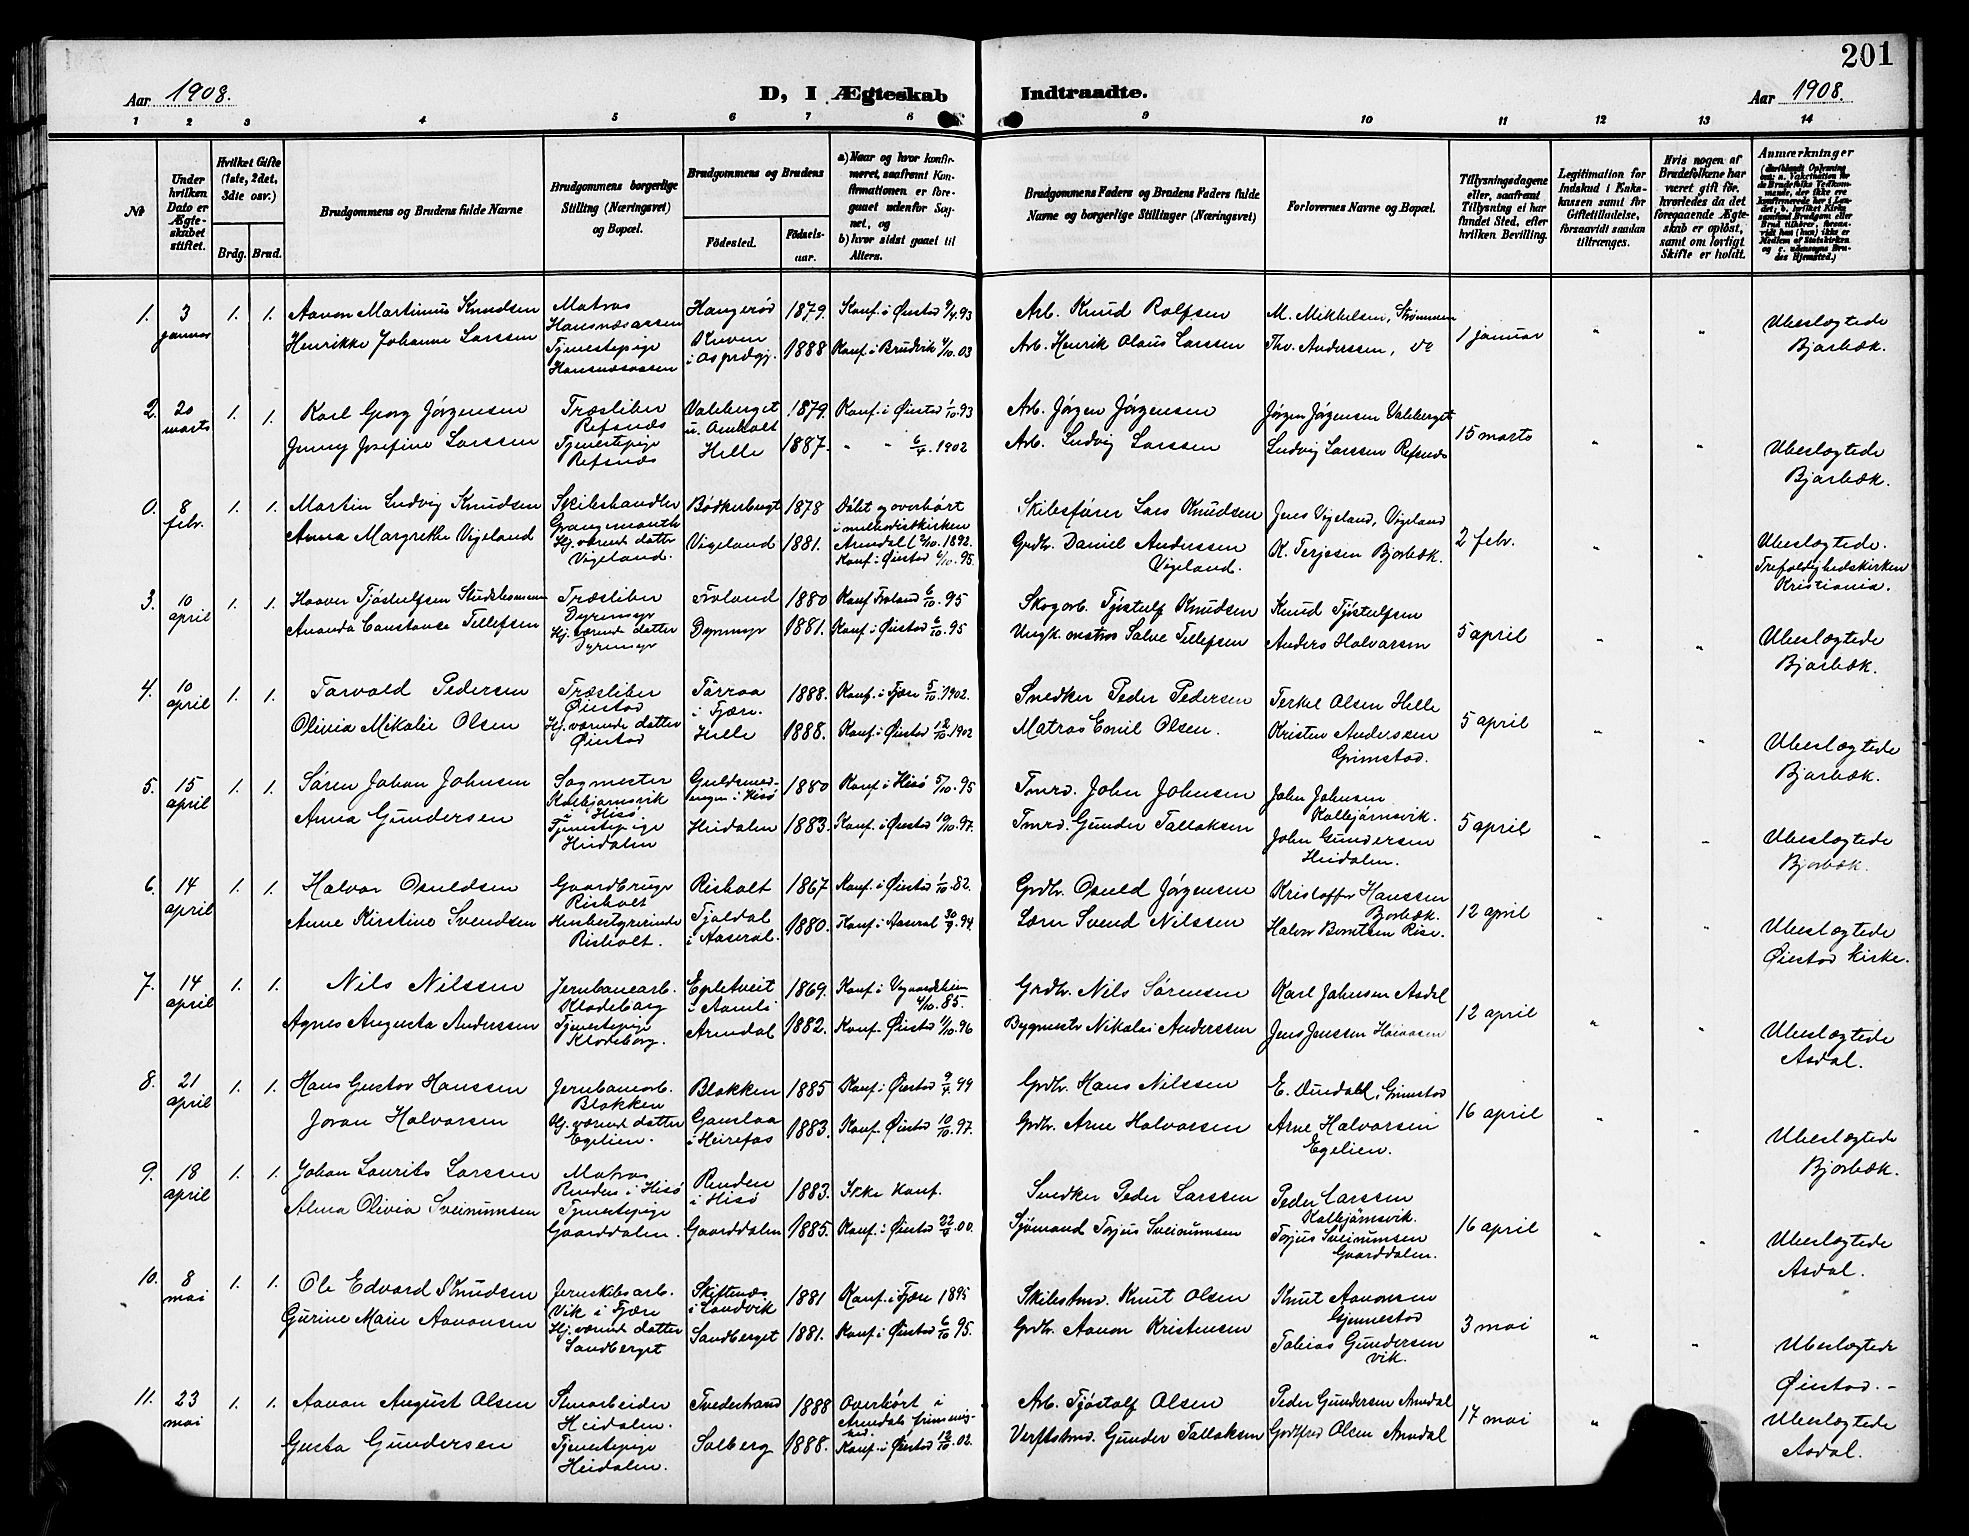 201
Aar 1908.
D, I Ægteskab Indtraadte.
Aar 1908.
1 2 3 4 5 6 7 8 9 10 11 12 13 14
№
Under hvilken Dato er Ægteskabet stiftet.
Hvilket Gifte (1ste, 2det, 3die osv.)
Brdg. Brud.
Brudgommens og Brudens fulde Navne
Brudgommens borgerlige Stilling (Næringsvei) og Bopæl.
Brudgommens og Brudens
Fødested. Fødselsaar.
a) Naar og hvor konfirmeret, saafremt Konfirmationen er foregaaet udenfor Sognet, og
b) hvor sidst gaaet til Alters.
Brudgommens Faders og Brudens Faders fulde Navne og borgerlige Stillinger (Næringsvei)
Forlovernes Navne og Bopæl.
Tillysningsdagene eller, saafremt Tillysning ei har fundet Sted, efter hvilken Bevilling.
Legitimation for Indskud i Enkekassen samt for Giftetilladelse, forsaavidt saadan tiltrænges.
Hvis nogen af Brudefolkene har været gift før, hvorledes da det foregaaende Ægteskab er opløst, samt om lovligt Skifte er holdt.
Anmærkninger
1. 3 januar 1. 1.
Aavon Martinius Knudsen Matros Hansnæsaasen 1879. Konf. i Øiestad 9/4 93
Arb. Knud Rolfsen M. Mikkelsen, Strømmen 1 januar " " Ubeslægtede Bjorbæk.
Henrikke Johanne Larssen Tjenestepige Hansnæsaasen 1888 Konf. i Brudvik 4/10.03
Arb. Henrik Olaus Larssen Thv. Anderssen, do
2. 20 marts 1. 1.
Karl Georg Jørgensen Træsliber Refsnæs Valeberget 1879. Konf. i Øiestad 1/10.93
Arb. Jørgen Jørgensen Jørgen Jørgensen Valeberget 15 marts " " Ubeslægtede Bjorbæk.
Jenny Josefine Larssen Tjenestepige Refsnæs Helle 1887. " " 6/4.1902
Arb. Ludvig Larssen Ludvig Larssen Refsnæs
0. 8 febr. 1. 1.
Martin Ludvig Knudsen Skibshandler Grangemouth Bødkerbugt 1878 Døbt og overhørt i methodistkirken Arendal 2/10.1892.
Skibsfører Lars Knudsen Jens Vigeland, Vigeland 2 febr. " " Ubeslægtede. Trefoldighedskirken Kristiania.
Anna Margrethe Vigeland Hj. værende datter Vigeland. Vigeland 1881. Konf. i Øiestad 6/10.95.
Grdbr. Daniel Anderssen Vigeland. K. Terjesen Bjorbæk.
3. 10 april 1. 1.
Træsliber Dyremyr Froland 1880 Konf Froland 6/10.95
Skogarb. Tjøstulf Knudsen Knud Tjøstulfsen 5 april " " Ubeslægtede Bjorbæk.
Ananda Constance Tellefsen Hj. værende datter Dyremyr Dyremyr 1881. Konf. i Øiestad 6/10.95
Salve Tellefsen Anders Halvorsen
4. 10 april 1. 1.
Torvald Pedersen Træsliber Øiestad Tørraa i Fjære. 1888. Konf. i Fjære 5/10.1902.
Snedker Peder Pedersen Terkel Olsen Helle 5 april " " Ubeslægtede Bjorbæk.
Olivia Mikalie Olsen Hj. værende datter Øiestad Helle 1888. Konf. i Øiestad 12/10.1902
Matros Emil Olsen. Kristen Anderssen Grimstad.
5. 15 april 1. 1.
Søren Johan Johnsen Sagmester Kolbjørnsvik i Hisø. 1880 Konf. i Hisø 5/10.95
Tmrd. John Johnsen John Johnsen Kolbjørnsvik. 5 april " " Ubeslægtede Bjorbæk.
Anna Gundersen Tjenestepige Heidalen Heidalen 1883. Konf. i Øiestad 10/10.97.
Tmrd. Gunder Tallaksen John Gundersen Heidalen.
6. 14 april 1. 1.
Halvor Osuldsen Gaardbruger Risholt Risholt 1867 Konf. i Øiestad 1/10.82.
Grdbr. Osuld Jørgensen Kristoffer Hanssen Bjorbæk. 12 april " " Ubeslægtede Øiestad kirke.
Anne Kirstine Svendsen Husbestyrerinde Risholt. Tjaldal i Aaseral. 1880. Konf. i Aaseral 30/9.94.
Lærer Svend Nilssen Halvor Berntsen Rise.
7. 14 april 1. 1.
Nils Nilssen Jernbanearb. Klodeborg Epletveit i Aamli 1869. Konf. i Vegaardsheien 4/10.85.
Grdbr. Nils Sørensen Karl Johnsen Asdal 12 april " " Ubeslægtede Asdal.
Agnes Augusta Anderssen Tjenestepige Klodeborg. Arendal 1882. Konf. Øiestad 4/10.96
Bygmester Nikolai Anderssen Jens Jenssen
8. 21 april 1. 1.
Hans Gustav Hanssen Jernbanearb. Blakken Blakken 1885 Konf. i Øiestad 9/4 99
Grdbr. Hans Nilssen Grimstad 16 april " " Ubeslægtede Bjorbæk.
Joran Halvorsen Hj. værende datter Egelien. Gamlaa i Heirefos 1883. Konf. Øiestad 10/10.97.
Grdbr. Arne Halvorsen Arne Halvorsen Egelien.
9. 18 april 1. 1.
Johan Laurits Larssen Matros Renden i Hisø Renden i Hisø 1883. Ikke Konf.
Snedker Peder Larssen Peder Larssen Kolbjørnsvik. 16 april " " Ubeslægtede Asdal.
Alma Olivia Sveinumsen Tjenestepige Gaarddalen. Gaarddalen 1885. Konf. i Øiestad 22/4.00.
Sjømand Torjus Sveinumsen Torjus Sveinumsen Gaarddalen.
10. 8 mai 1. 1.
Ole Edvard Knudsen Jernskibsarb. Vik i Fjære Skiftenæs i Landvik 1881 Konf. i Fjære 1895
Skibstmd. Knut Olsen Knut Aavonsen Gjennestad 3 mai " " Ubeslægtede Øiestad.
Gurine Marie Aavonsen Hj. værende datter Sandberget Sandberget 1881. Konf. i Øiestad 6/10 95.
Grdbr. Aavon Kristensen Tobias Gundersen Vik.
11. 23 mai 1. 1.
Aavon August Olsen Stenarbeider Heidalen. Tvedestrand 1888 Overhørt i Arendals frimenighed.
Arb. Tjøstolf Olsen Peder Gundersen Arendal 17 mai " " Ubeslægtede Asdal.
Gusta Gundersen Tjenestepige Heidalen. Solberg 1888. Konf. i Øiestad 12/10.02.
Verftstmd. Gunder Tallaksen Godtfred Olsen Arendal